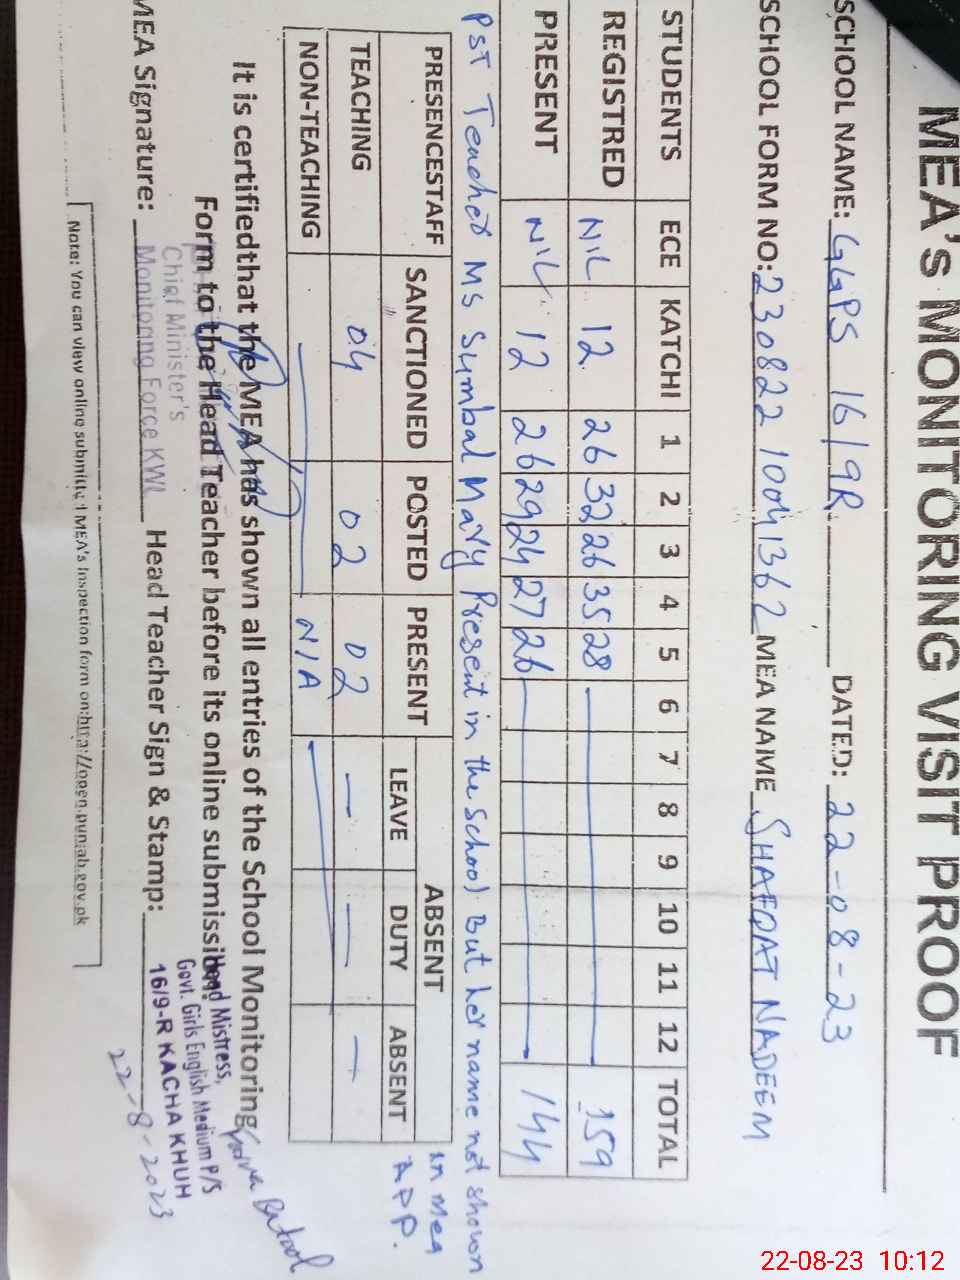 MEA's MONITORING VISIT PROOF
SCHOOL NAME: GGPS 16/9R DATED: 22-08-23
SCHOOL FORM NO: 230822 10041362 MEA NAME SHAFQAT NADEEM
STUDENTS ECE KATCHI 1 2 3 4 5 6 7 8 9 10 11 12 TOTAL
REGISTRED NIL 12 26 32 26 35 28 159
PRESENT NIL 12 26 29 24 27 26 144
PST Teacher Ms Sumbal Mary Present in the School But her name not shown
in Mea
APP.
PRESENCESTAFF SANCTIONED POSTED PRESENT ABSENT
LEAVE DUTY ABSENT
TEACHING 04 02 02 — — —
NON-TEACHING N/A
It is certifiedthat the MEA has shown all entries of the School Monitoring
Form to the Head Teacher before its online submission.
Chief Minister's
Monitoring Force KWL
MEA Signature: Head Teacher Sign & Stamp:
Batool
Head Mistress,
Govt. Girls English Medium P/S
16/9-R KACHA KHUH
22-8-2023
Note: You can view online submitted MEA's Inspection form on:http://open.punjab.gov.pk
22-08-23 10:12